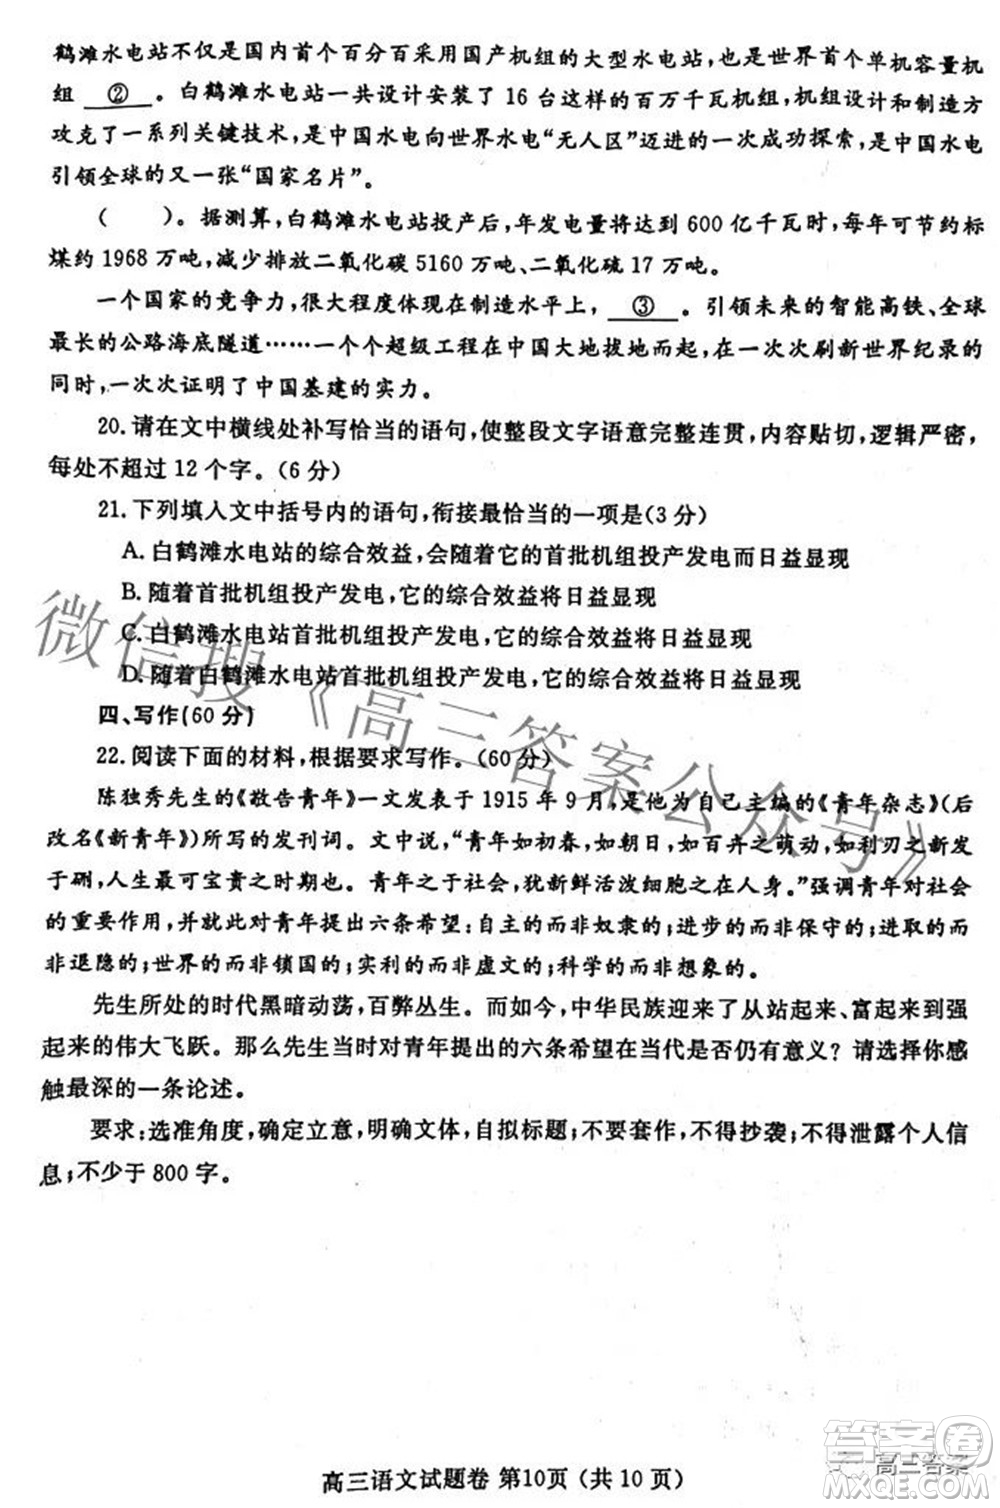 鹤滩水电站不仅是国内首个百分百采用国产机组的大型水电站,也是世界首个单机容量机
组 ② 。白鹤滩水电站一共设计安装了 16 台这样的百万千瓦机组,机组设计和制造方
攻克了一系列关键技术,是中国水电向世界水电“无人区”迈进的一次成功探索,是中国水电
引领全球的又一张“国家名片”。
( )。据测算,白鹤滩水电站投产后,年发电量将达到 600 亿千瓦时,每年可节约标
煤约 1968 万吨,减少排放二氧化碳 5160 万吨、二氧化硫 17 万吨。
一个国家的竞争力,很大程度体现在制造水平上, ③ 。引领未来的智能高铁、全球
最长的公路海底隧道……一个个超级工程在中国大地拔地而起,在一次次刷新世界纪录的
同时,一次次证明了中国基建的实力。
20.请在文中横线处补写恰当的语句,使整段文字语意完整连贯,内容贴切,逻辑严密,
每处不超过 12 个字。(6 分)
21.下列填人文中括号内的语句,衔接最恰当的一项是(3 分)
A.白鹤滩水电站的综合效益,会随着它的首批机组投产发电而日益显现
B.随着首批机组投产发电,它的综合效益将日益显现
C.白鹤滩水电站首批机组投产发电,它的综合效益将日益显现
D.随着白鹤滩水电站首批机组投产发电,它的综合效益将日益显现
四、写作(60 分)
22.阅读下面的材料,根据要求写作。(60 分)
陈独秀先生的《敬告青年》一文发表于 1915 年 9 月,是他为自己主编的《青年杂志》(后
改名《新青年》)所写的发刊词。文中说,“青年如初春,如朝日,如百卉之萌动,如利刃之新发
于硎,人生最可宝贵之时期也。青年之于社会,犹新鲜活泼细胞之在人身。”强调青年对社会
的重要作用,并就此对青年提出六条希望:自主的而非奴隶的;进步的而非保守的;进取的而
非退隐的;世界的而非锁国的;实利的而非虚文的;科学的而非想象的。
先生所处的时代黑暗动荡,百弊丛生。而如今,中华民族迎来了从站起来、富起来到强
起来的伟大飞跃。那么先生当时对青年提出的六条希望在当代是否仍有意义?请选择你感
触最深的一条论述。
要求:选准角度,确定立意,明确文体,自拟标题;不要套作,不得抄袭;不得泄露个人信
息;不少于 800 字。
微信搜《高三答案公众号》
高三语文试题卷 第10页(共 10 页)
答案卷
高三答案
MXQE.COM